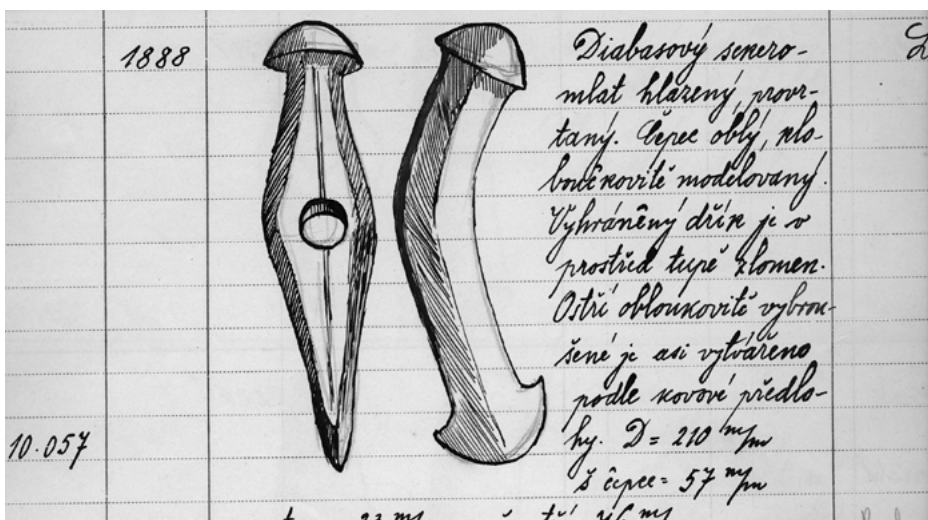 1888
Diabasový sekero-
mlat hlazený, provr-
taný. Čepec oblý, klo-
boučkovitě modelovaný.
Vyhráněný dřík je v
prostřed tupě zlomen.
Ostří obloukovitě vybrou-
šené je asi vytvářeno
podle kovové předlo-
10.057
hy. D = 210 m/m
š čepce = 57 m/m